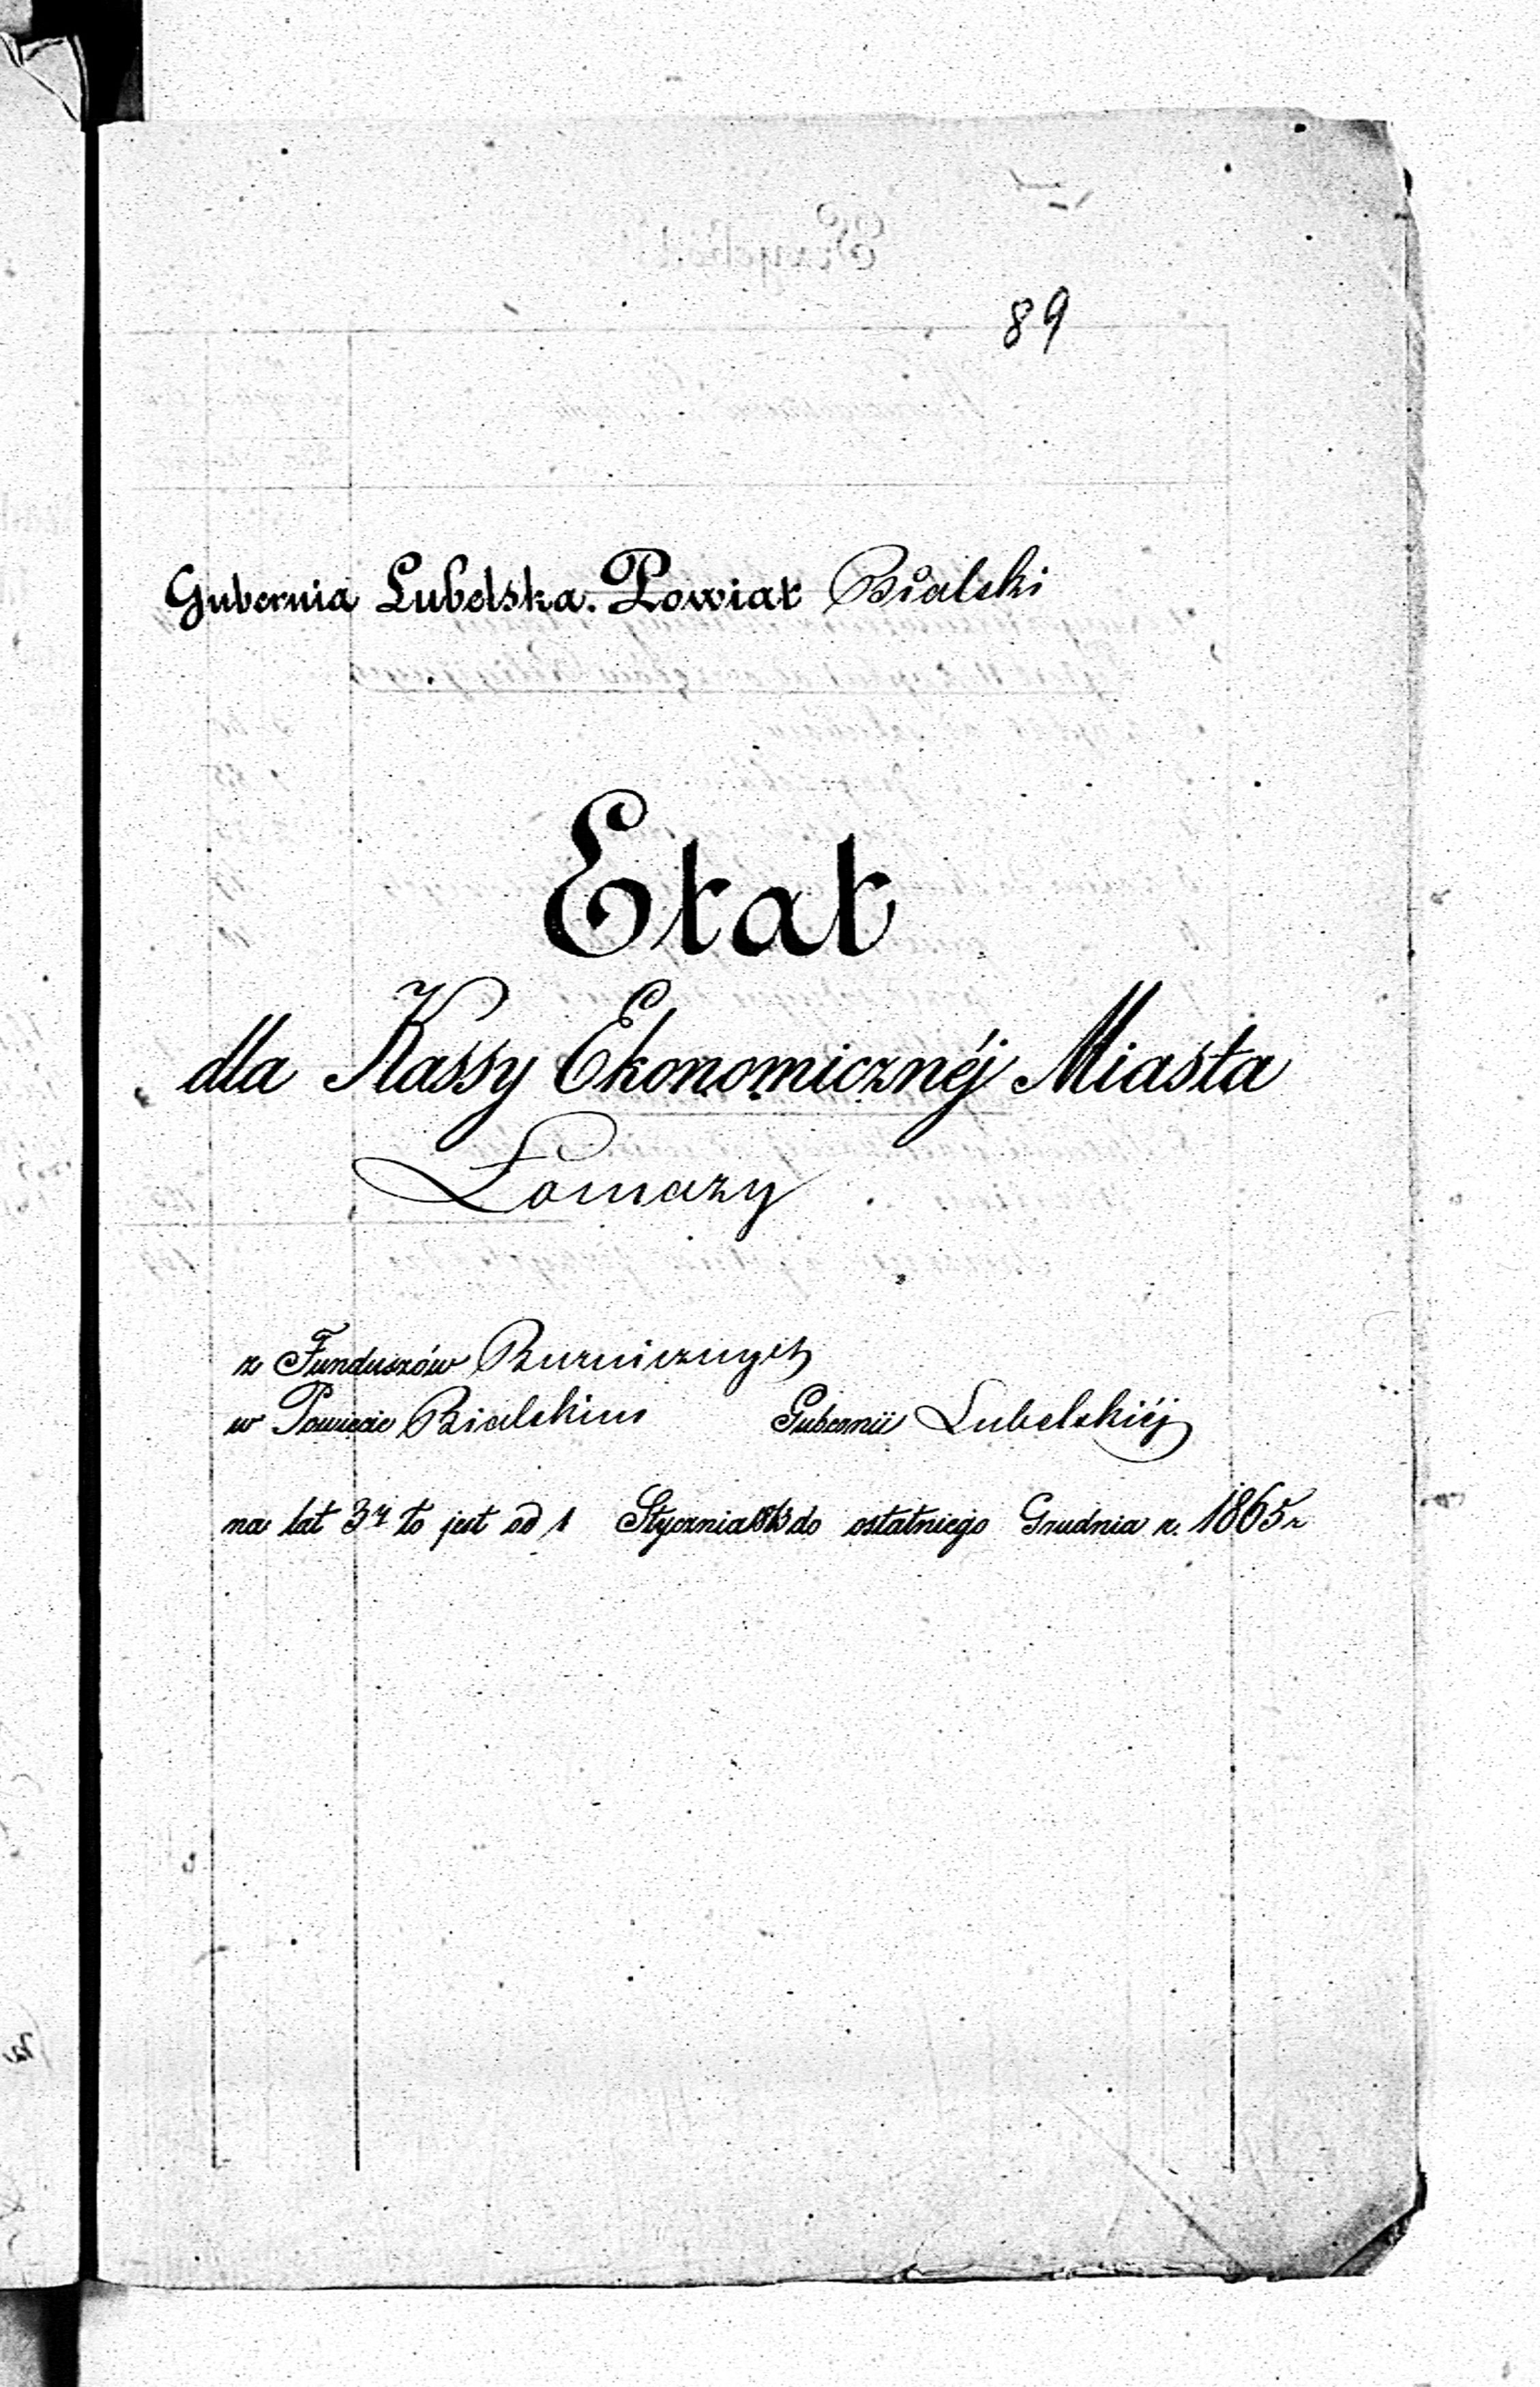 89
Gubernia Lubelska. Powiat Bialski
Etat
dla Kassy Ekonomicznéj Miasta
Łomazy
z Funduszów Bużnicznych
w Powiecie Bialskim Gubernii Lubelskiéj
na lat 3y to jest od 1 Stycznia 1863 do ostatniego Grudnia r. 1865 r